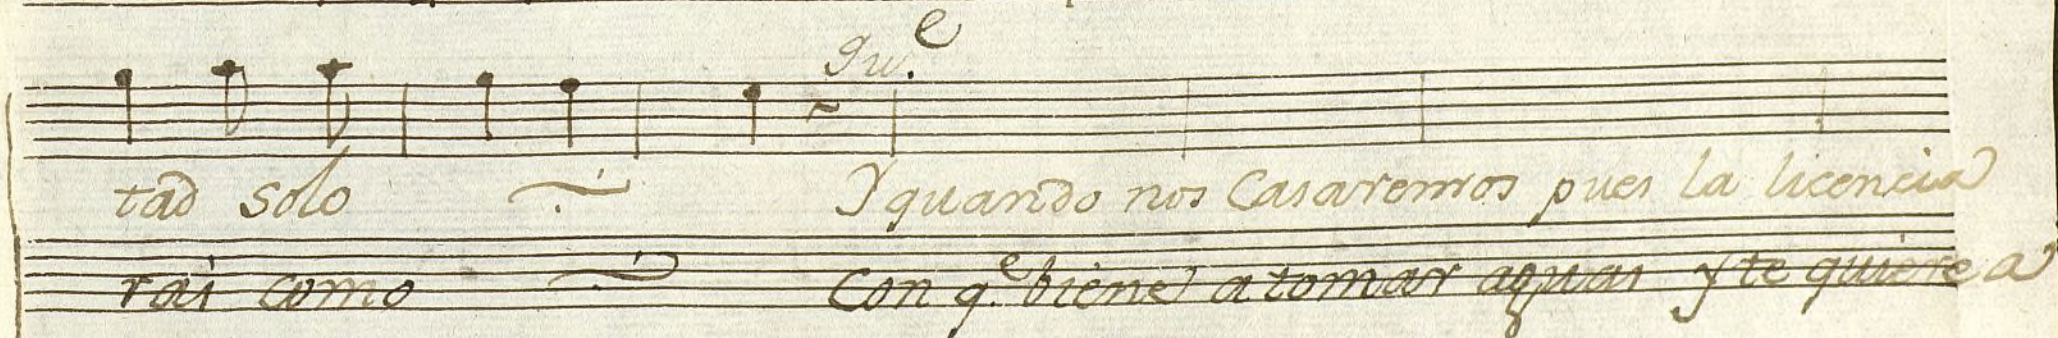 tad solo Y quando nos Casaremos pues la licencia
ras como Con q.e biene a tomar aguas y te quiere a